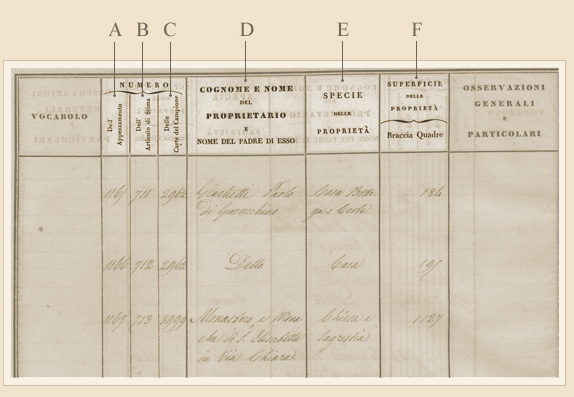 A B C D E F
VOCABOLO
NUMERO
Dell' Appezzamento
Dell' Articolo di Stima
Delle Carte del Campione
COGNOME E NOME
DEL
PROPRIETARIO
E
NOME DEL PADRE DI ESSO
SPECIE
DELLE
PROPRIETÀ
SUPERFICIE
DELLE
PROPRIETÀ
Braccia Quadre
OSSERVAZIONI
GENERALI
E
PARTICOLARI
711 2962 Giachetti Paolo Casa Botte 184
di Giovacchino ga e Corte
1166 712 2962 Detto Casa
1167 713 3999 Monastero, e Mona Chiesa e 1127
che di S. Elisabetta Sagrestia
in Via Chiara